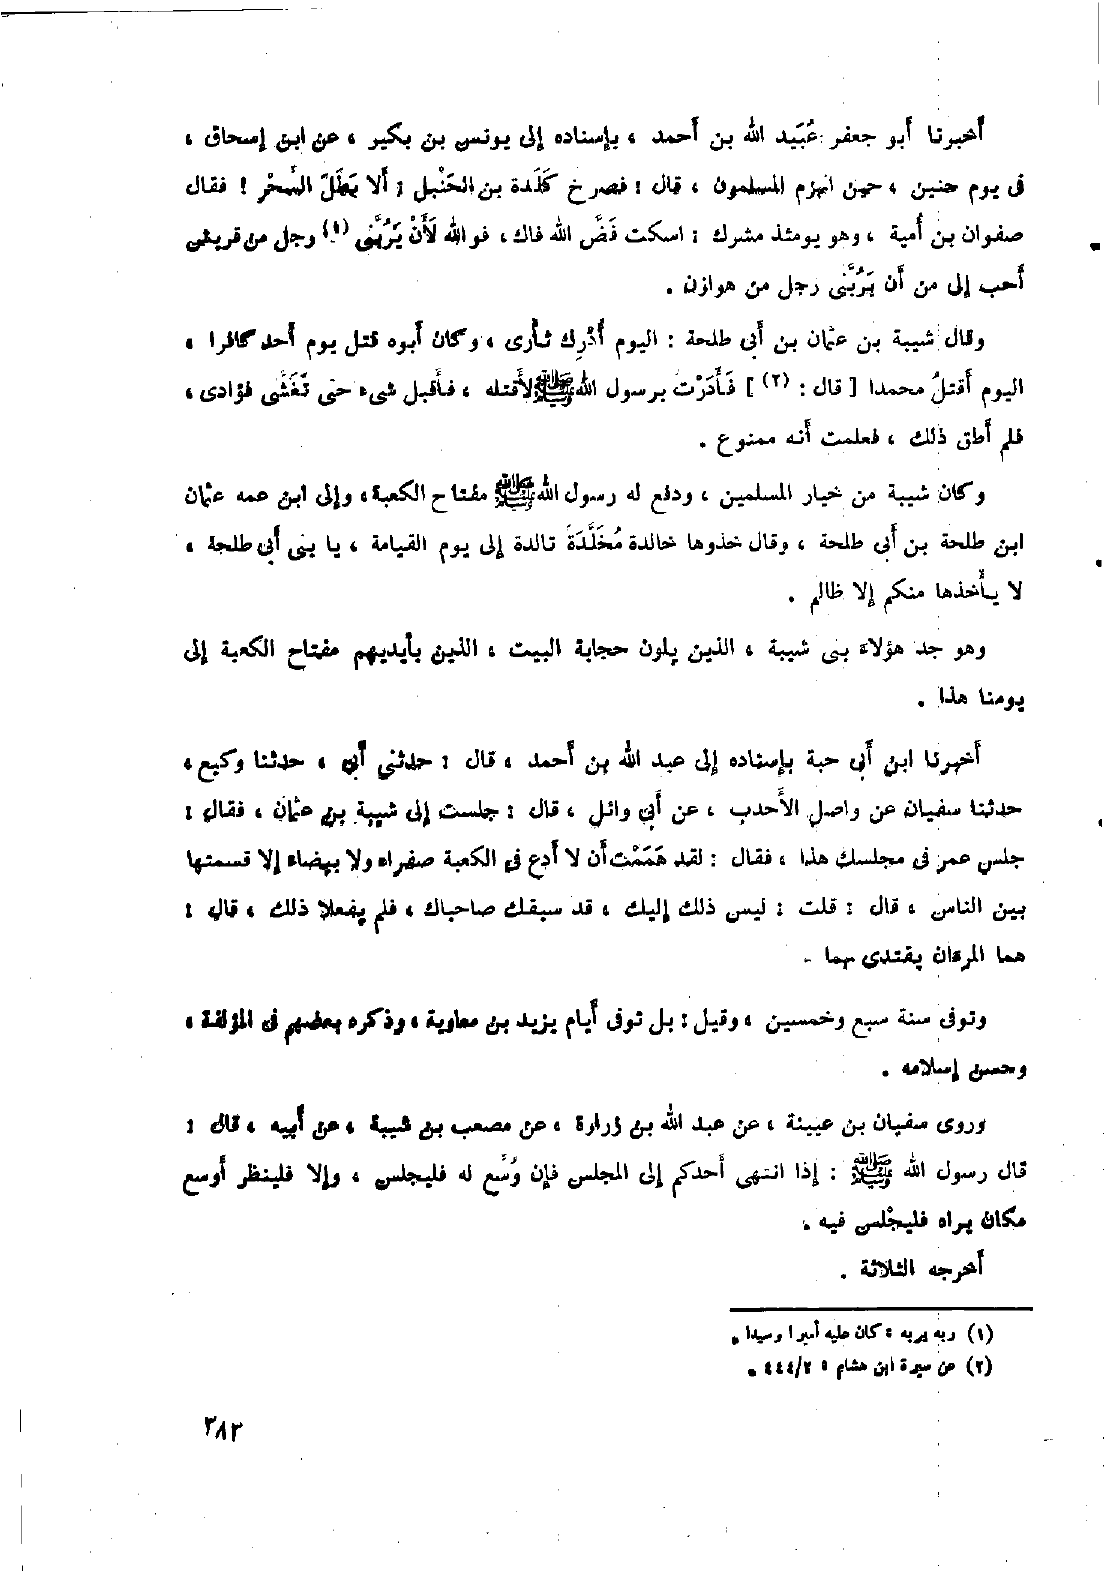 أخبرنا أبو جعفر عُبَيد الله بن أحمد ، بإسناده إلى يونس بن بكير ، عن ابن إسحاق ،
فى يوم حنين ، حين انهزم المسلمون ، قال : فصرخ كَلَدة بن الحَنْبل : ألا بَطَلَ السِّحْر ! فقال
صفوان بن أُمية ، وهو يومئذ مشرك : اسكت فَضَّ الله فاك ، فوالله لَأَنْ يَرُبَّنى (١) رجل من قريش
أحب إلى من أن يَرُبَّنى رجل من هوازن .
وقال شيبة بن عثمان بن أبى طلحة : اليوم أُدْرِك ثأرى ، وكان أبوه قتل يوم أحد كافرا ،
اليوم أقتلُ محمدا [ قال : (٢) ] فَأَدَرْت برسول الله ﷺ لأقتله ، فأقبل شىء حتى تَغَشَّى فؤادى ،
فلم أطق ذلك ، فعلمت أنه ممنوع .
وكان شيبة من خيار المسلمين ، ودفع له رسول الله ﷺ مفتاح الكعبة ، وإلى ابن عمه عثمان
ابن طلحة بن أبى طلحة ، وقال خذوها خالدة مُخَلَّدَةً تالدة إلى يوم القيامة ، يا بنى أبى طلحة ،
لا يأخذها منكم إلا ظالم .
وهو جد هؤلاء بنى شيبة ، الذين يلون حجابة البيت ، الذين بأيديهم مفتاح الكعبة إلى
يومنا هذا .
أخبرنا ابن أبى حبة بإسناده إلى عبد الله بن أحمد ، قال : حدثني أبي ، حدثنا وكيع ،
حدثنا سفيان عن واصل الأحدب ، عن أبي وائل ، قال : جلست إلى شيبة بن عثمان ، فقال :
جلس عمر فى مجلسك هذا ، فقال : لقد هَمَمْت أن لا أدع فى الكعبة صفراء ولا بيضاء إلا قسمتها
بين الناس ، قال : قلت : ليس ذلك إليك ، قد سبقك صاحباك ، فلم يفعلا ذلك ، قال :
هما المرءان يقتدى بهما .
وتوفى سنة سبع وخمسين ، وقيل : بل توفى أيام يزيد بن معاوية ، وذكره بعضهم فى المؤلفة ،
وحسن إسلامه .
وروى سفيان بن عيينة ، عن عبد الله بن زرارة ، عن مصعب بن شيبة ، عن أبيه ، قال :
قال رسول الله ﷺ : إذا انتهى أحدكم إلى المجلس فإن وُسِّع له فليجلس ، وإلا فلينظر أوسع
مكان يراه فليجْلس فيه .
أخرجه الثلاثة .
(١) ربه يربه : كان عليه أميرا وسيدا .
(٢) عن سيرة ابن هشام : ٤٤٤/٢ .
٣٨٣